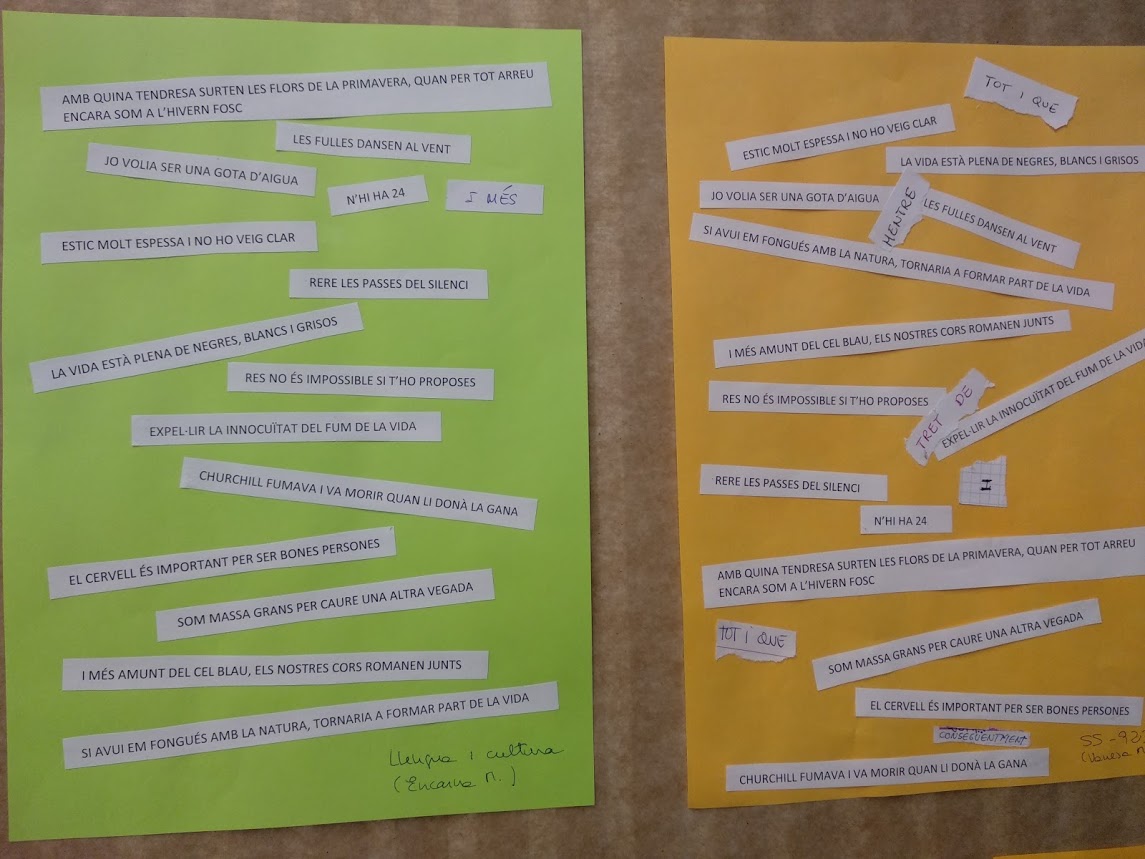 AMB QUINA TENDRESA SURTEN LES FLORS DE LA PRIMAVERA, QUAN PER TOT ARREU
ENCARA SOM A L'HIVERN FOSC
LES FULLES DANSEN AL VENT
JO VOLIA SER UNA GOTA D'AIGUA
N'HI HA 24
I MÉS
ESTIC MOLT ESPESSA I NO HO VEIG CLAR
RERE LES PASSES DEL SILENCI
LA VIDA ESTÀ PLENA DE NEGRES, BLANCS I GRISOS
RES NO ÉS IMPOSSIBLE SI T'HO PROPOSES
EXPEL·LIR LA INNOCUÏTAT DEL FUM DE LA VIDA
CHURCHILL FUMAVA I VA MORIR QUAN LI DONÀ LA GANA
EL CERVELL ÉS IMPORTANT PER SER BONES PERSONES
SOM MASSA GRANS PER CAURE UNA ALTRA VEGADA
I MÉS AMUNT DEL CEL BLAU, ELS NOSTRES CORS ROMANEN JUNTS
SI AVUI EM FONGUÉS AMB LA NATURA, TORNARIA A FORMAR PART DE LA VIDA
Llengua i cultura
(Encarna M.)
TOT I QUE
ESTIC MOLT ESPESSA I NO HO VEIG CLAR
LA VIDA ESTÀ PLENA DE NEGRES, BLANCS I GRISOS
JO VOLIA SER UNA GOTA D'AIGUA
MENTRE
LES FULLES DANSEN AL VENT
SI AVUI EM FONGUÉS AMB LA NATURA, TORNARIA A FORMAR PART DE LA VIDA
I MÉS AMUNT DEL CEL BLAU, ELS NOSTRES CORS ROMANEN JUNTS
RES NO ÉS IMPOSSIBLE SI T'HO PROPOSES
TRET DE
EXPEL·LIR LA INNOCUÏTAT DEL FUM DE LA VIDA
RERE LES PASSES DEL SILENCI
N'HI HA 24
AMB QUINA TENDRESA SURTEN LES FLORS DE LA PRIMAVERA, QUAN PER TOT ARREU
ENCARA SOM A L'HIVERN FOSC
TOT I QUE
SOM MASSA GRANS PER CAURE UNA ALTRA VEGADA
EL CERVELL ÉS IMPORTANT PER SER BONES PERSONES
CONSEGÜENTMENT
CHURCHILL FUMAVA I VA MORIR QUAN LI DONÀ LA GANA